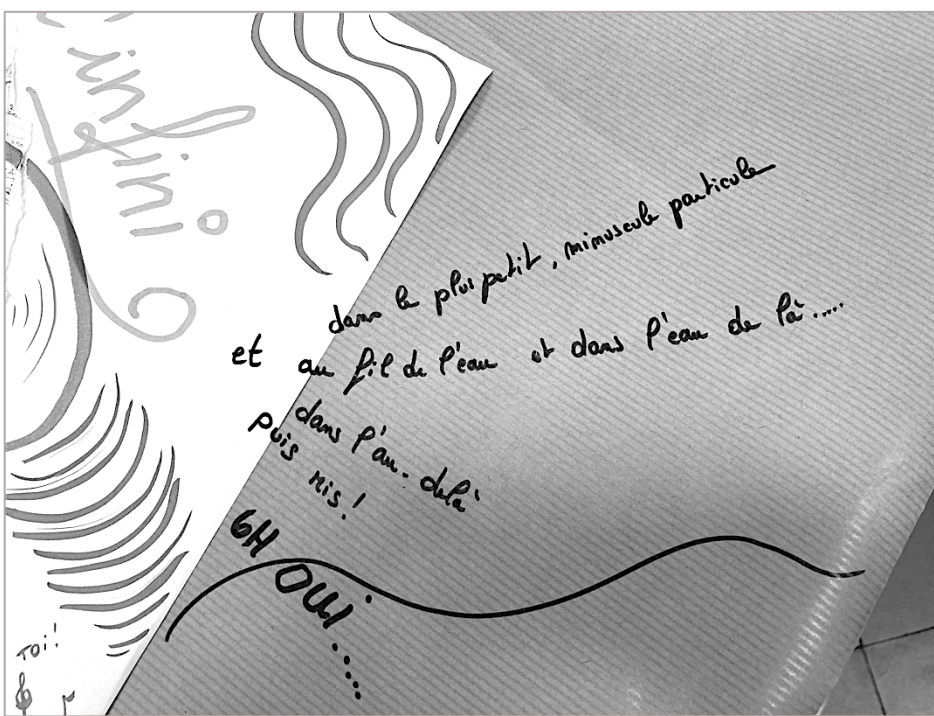 infini
dans le plus petit, minuscule particule
et au fil de l'eau et dans l'eau de là.....
dans l'au-delà
puis ris!
OH
OUI.....
TOi!